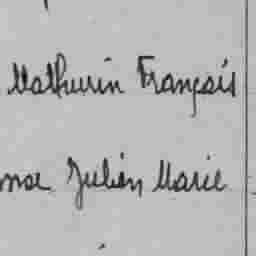 Mathurin Français
Julien Marie